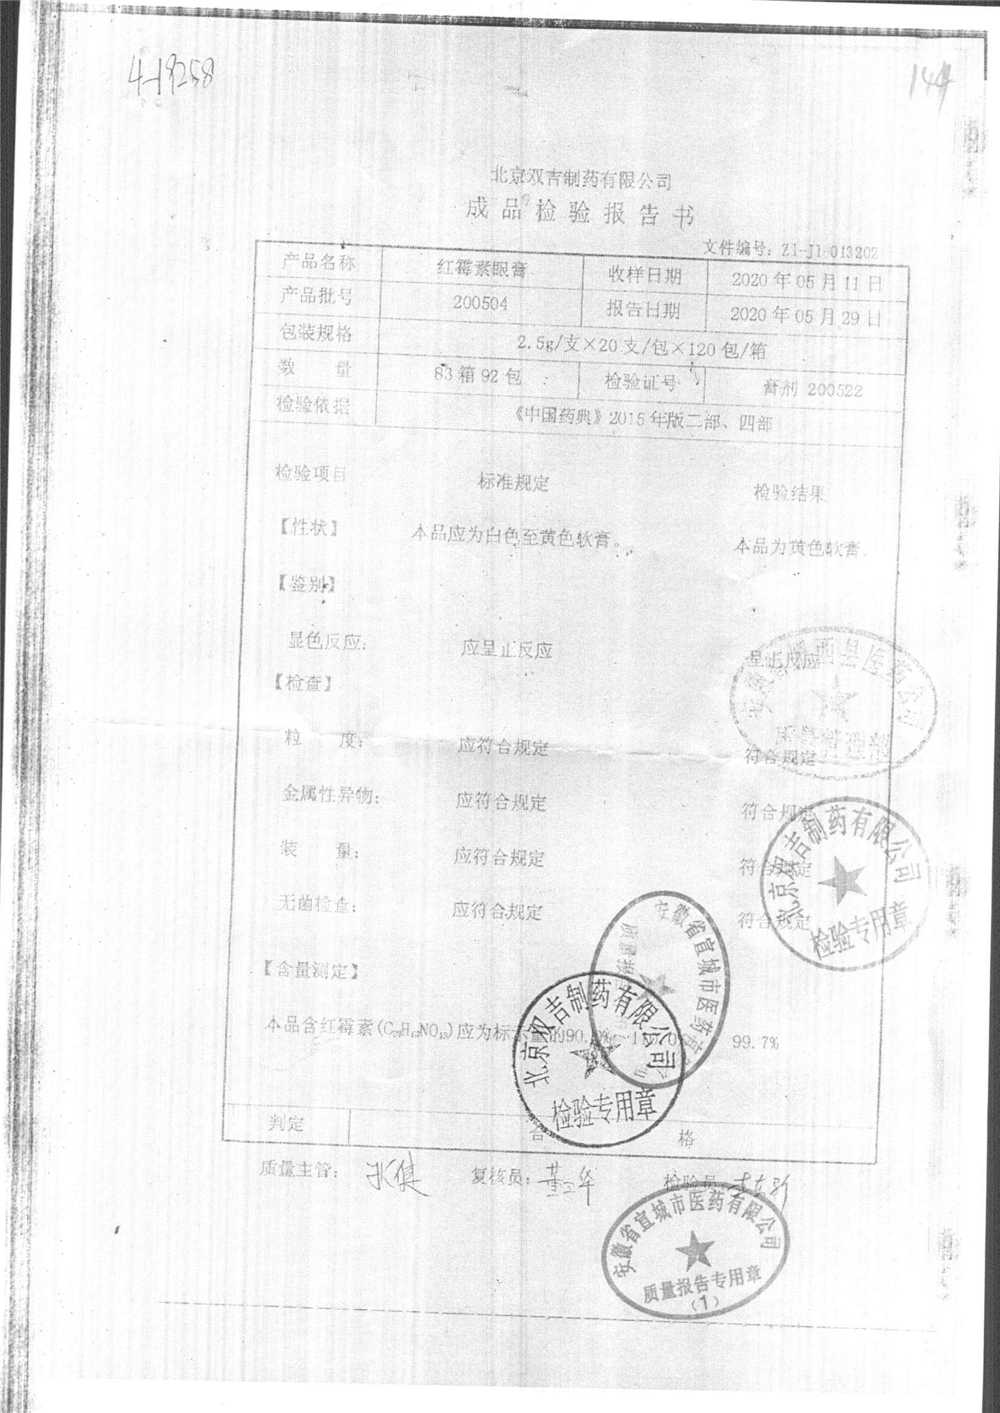 4-18258
144
北京双吉制药有限公司
成品检验报告书
文件编号：ZJ-J1-013202
产品名称 红霉素眼膏 收样日期 2020年05月11日
产品批号 200504 报告日期 2020年05月29日
包装规格 2.5g/支×20支/包×120包/箱
数 量 83箱92包 检验证号 膏剂 200522
检验依据 《中国药典》2015年版二部、四部
检验项目 标准规定 检验结果
【性状】 本品应为白色至黄色软膏。 本品为黄色软膏。
【鉴别】
显色反应： 应呈正反应 呈正反应
【检查】
粒 度： 应符合规定 符合规定
金属性异物： 应符合规定 符合规定
装 量： 应符合规定 符合规定
无菌检查： 应符合规定 符合规定
【含量测定】
本品含红霉素(C₃₇H₆₇NO₁₃)应为标示量的90.0%~110.0% 99.7%
判定 合 格
质量主管： 复核员： 检验员
北京双吉制药有限公司
检验专用章
安徽省宣城市医药有限公司
北京双吉制药有限公司
检验专用章
安徽省宣城市医药有限公司
质量报告专用章
(1)